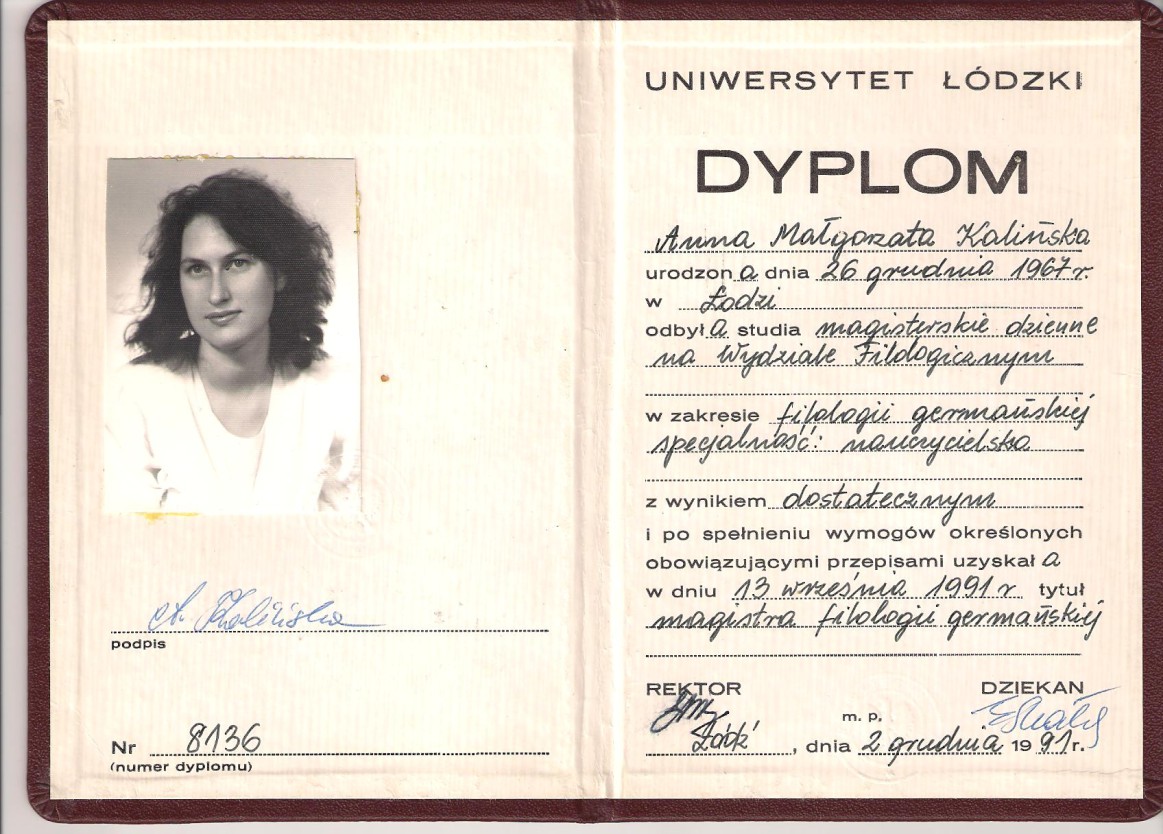 A. Kalińska
podpis
Nr 8136
(numer dyplomu)
UNIWERSYTET ŁÓDZKI
DYPLOM
Anna Małgorzata Kalińska
urodzona dnia 26 grudnia 1967 r.
w Łodzi
odbyła studia magisterskie dzienne
na Wydziale Filologicznym
w zakresie filologii germańskiej
specjalność: nauczycielska
z wynikiem dostatecznym
i po spełnieniu wymogów określonych
obowiązującymi przepisami uzyskał a
w dniu 13 września 1991 r tytuł
magistra filologii germańskiej
REKTOR DZIEKAN
m. p.
Łódź, dnia 2 grudnia 1991 r.